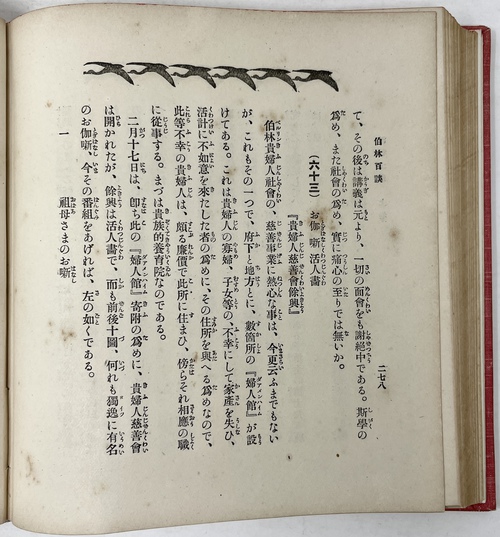 伯林百談
二七八
て、その後は講義は元より、一切の面會をも謝絶中である。斯學の
爲め、また社會の爲め、實に痛心の至りでは無いか。
(六十三) お伽噺活人畵
『貴婦人慈善會餘興』
伯林貴婦人社會の、慈善事業に熱心な事は、今更云ふまでもない
が、これもその一つで、府下と地方とに、數箇所の『婦人館』が設
けてある。これは貴婦人の寡婦、子女等の、不幸にして家産を失ひ、
活計に不如意を來たした者の爲めに、その住所を與へる爲めなので、
此等不幸の貴婦人は、頗る廉價で此所に住まひ、傍らそれ相應の職
に從事する。まづは貴族的養育院なのである。
二月十七日は、卽ち此の『婦人館』寄附の爲めに、貴婦人慈善會
は開かれたが、餘興は活人畵で、而も前後十圖、何れも獨逸に有名
のお伽噺、今その番組をあげれば、左の如くである。
一 祖母さまのお噺